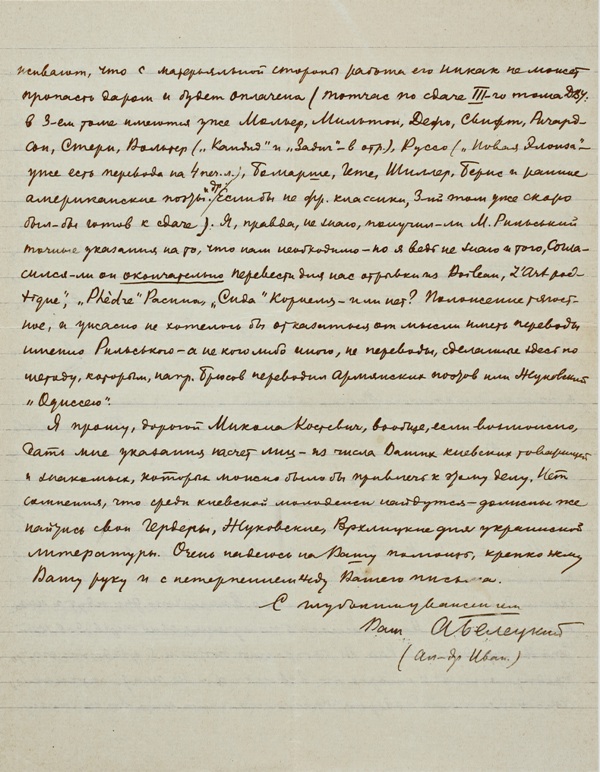 живают, что с матерьяльной стороны работа его никак не может
пропасть даром и будет оплачена (тотчас по сдаче III-го тома ДВУ:
в 3-ем томе имеются уже Мольер, Мильтон, Дефо, Свифт, Ричард-
сон, Стерн, Вольтер („Кандид" и „Задиг"-в отр.), Руссо („Новая Элоиза"-
уже есть перевода на 4 печ. л.), Бомарше, Гете, Шиллер, Бернс и ранние
американские поэты и др. Если бы не фр. классики, 3-ий том уже скоро
был-бы готов к сдаче). Я, правда, не знаю, получил-ли М. Рильський
точные указания на то, что нам необходимо - но я ведь не знаю и того, согла-
сился-ли он окончательно перевести для нас отрывки из Boileau, L'Art poé-
tique", „Phèdre" Расина, „Сида" Корнеля - или нет? Положение тягост-
ное, и ужасно не хотелось бы отказаться от мысли иметь переводы
именно Рильського - а не кого либо иного, не переводы, сделанные здесь по
методу, которым, напр. Брюсов переводил армянских поэтов или Жуковский
"Одиссею".
Я прошу, дорогой Микола Костевич, вообще, если возможно,
дать мне указания насчет лиц - из числа Ваших киевских товарищей
и знакомых, которых можно было бы привлечь к этому делу. Нет
сомнения, что среди киевской молодежи найдутся - должны же
найтись свои Гердеры, Жуковские, Врхлицкие для украинской
литературы. Очень надеюсь на Вашу помощь, крепко жму
Вашу руку и с нетерпением жду Вашего письма.
С глубоким уважением
Ваш АБелецкий
(Ал-др Иван.)